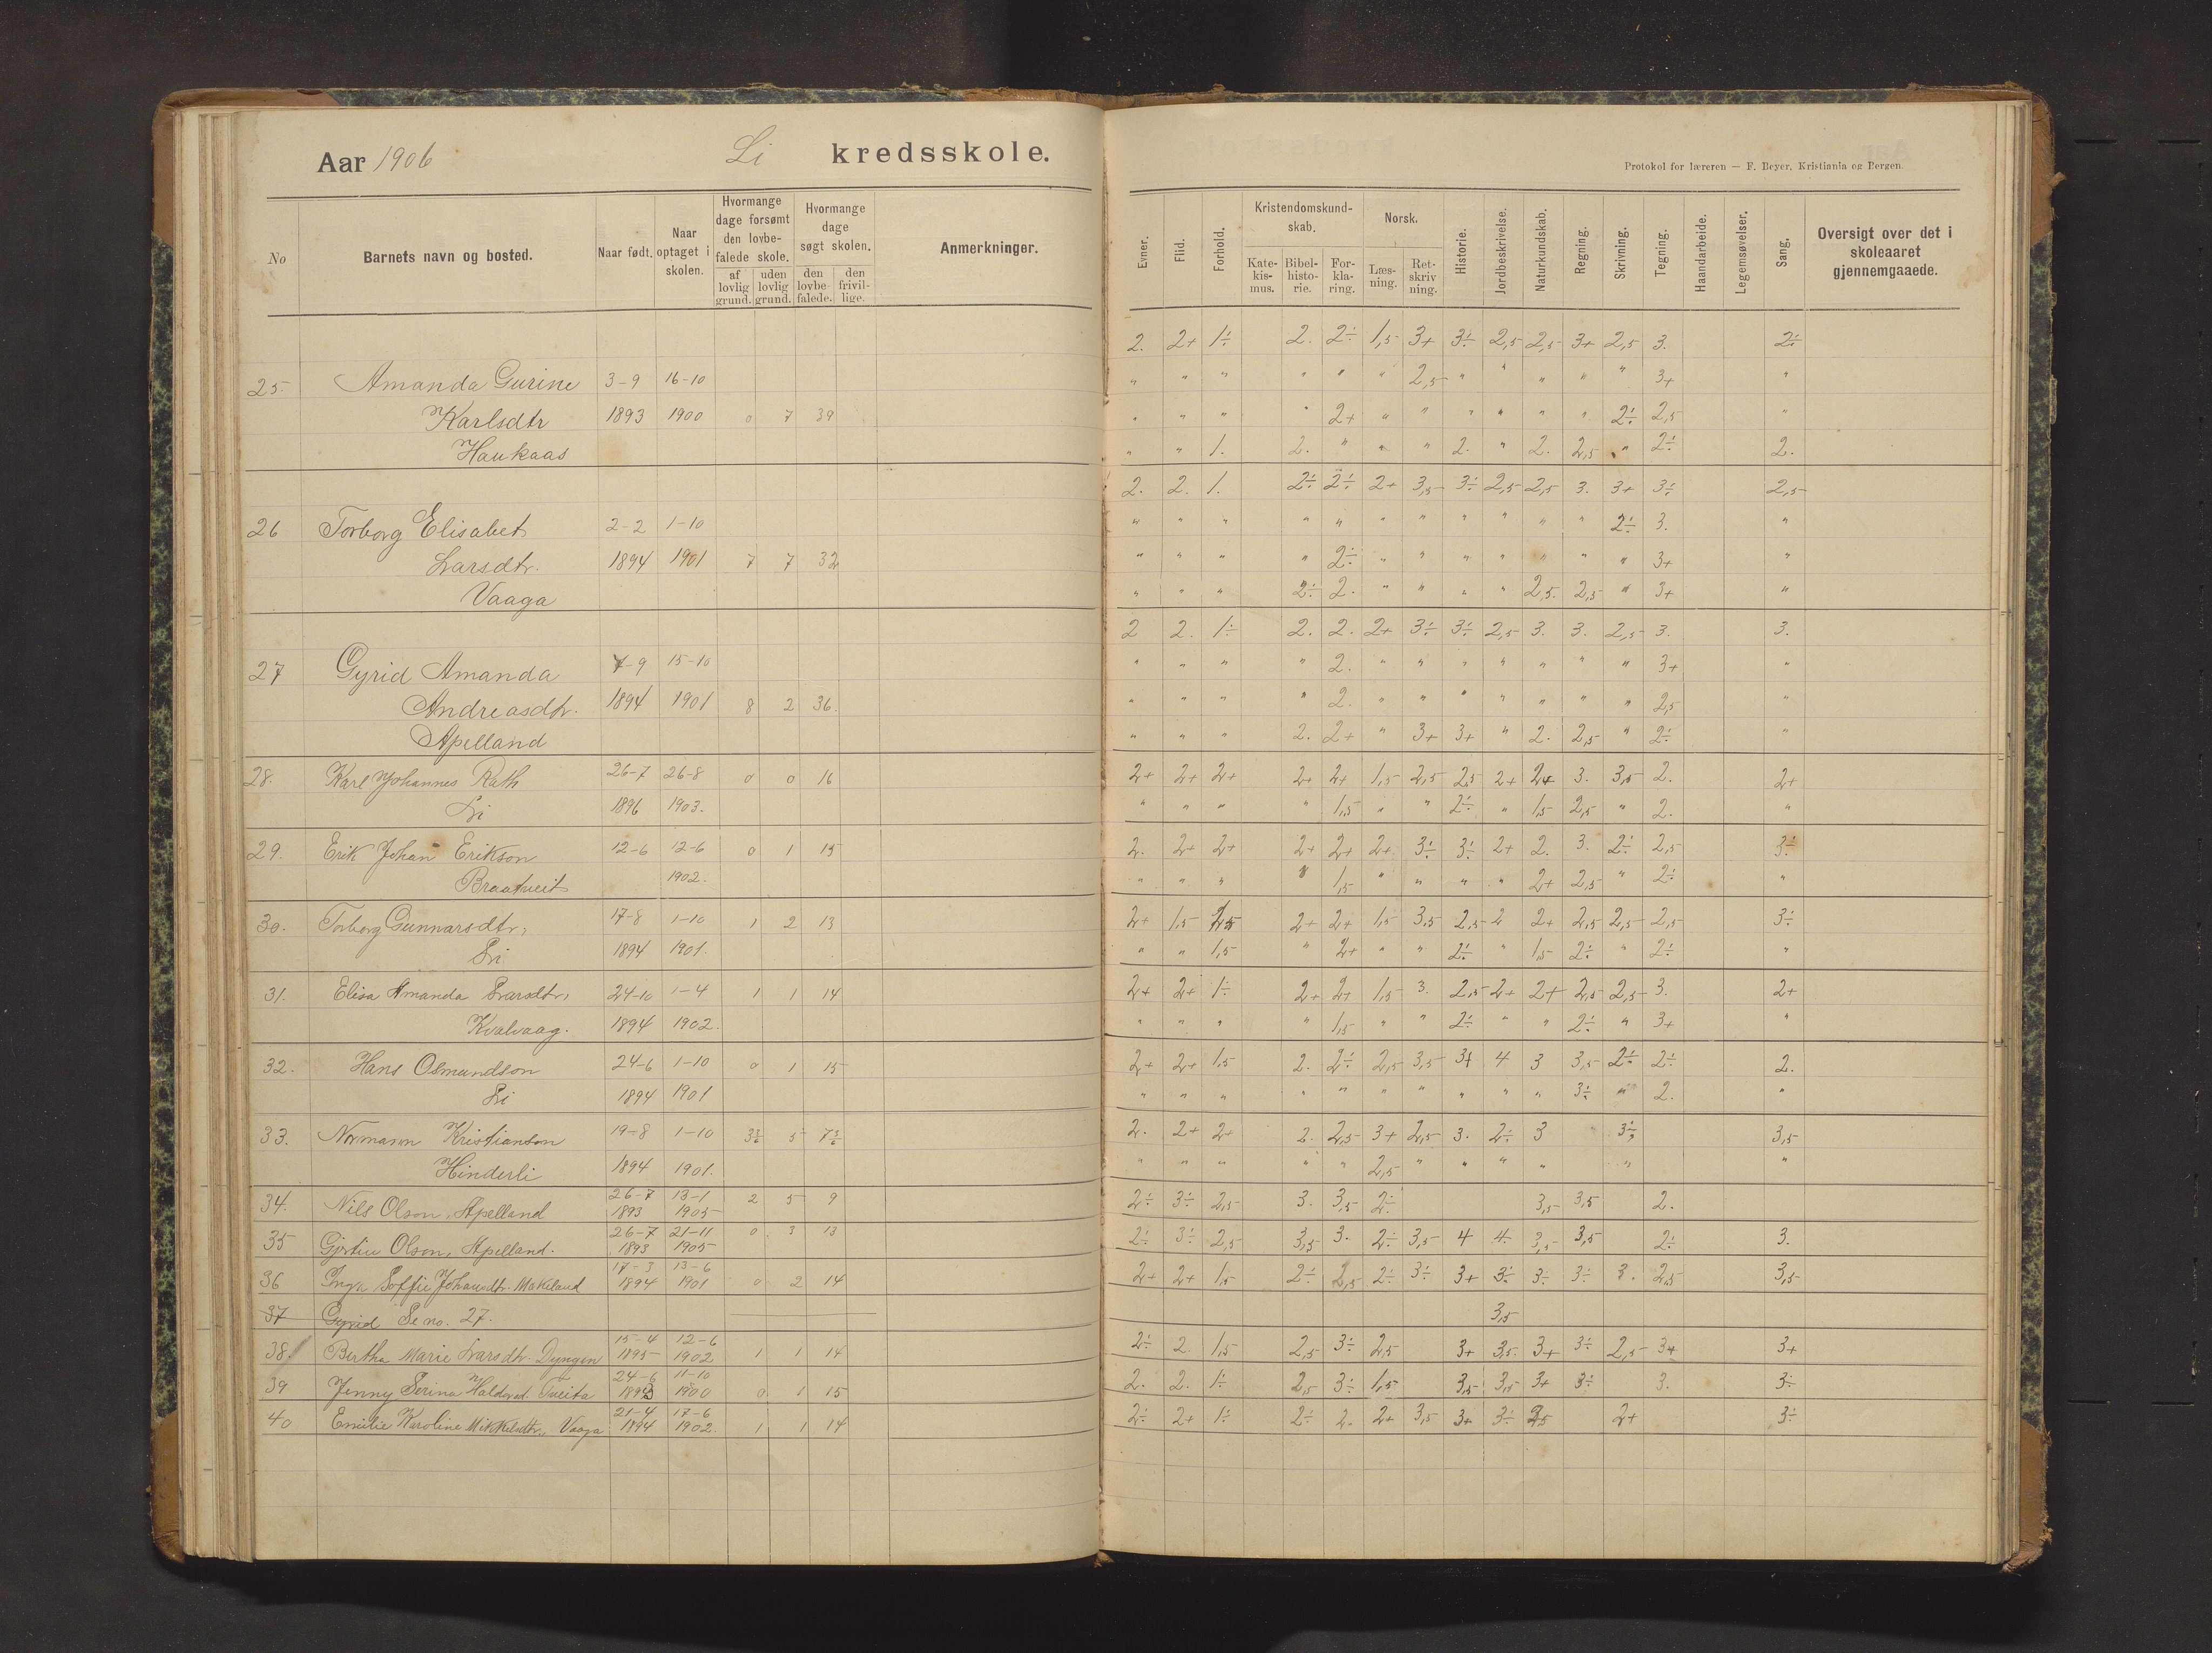 Aar 1906 Li kredsskole.
Protokol for læreren — F. Beyer, Kristiania og Bergen.
No Barnets navn og bosted. Naar født. Naar optaget i skolen. Hvormange dage forsømt den lovbefalede skole. af lovlig grund. uden lovlig grund. Hvormange dage søgt skolen. den lovbefalede. den frivillige. Anmerkninger.
Evner. Flid. Forhold. Kristendomskundskab. Katekismus. Bibelhistorie. Forklaring. Norsk. Læsning. Retskrivning. Historie. Jordbeskrivelse. Naturkundskab. Regning. Skrivning. Tegning. Haandarbeide. Legemsøvelser. Sang. Oversigt over det i skoleaaret gjennemgaaede.
2. 2+ 1÷ 2. 2÷ 1,5 3+ 3÷ 2,5 2,5 3+ 2,5 3. 2÷
25. Amanda Gurine 3-9 16-10 " " " " " " 2,5 " " " " " 3+ "
Karlsdtr 1893 1900 0 7 39 " " " " 2+ " " " " " " 2÷ 2,5 "
Haukaas " " 1. 2. " " " 2. " 2. 2,5 " 2÷ 2.
2. 2. 1. 2÷ 2÷ 2+ 3,5 3÷ 2,5 2,5 3. 3+ 3÷ 2,5
26 Torborg Elisabet 2-2 1-10 " " " " " " " " " " " 2÷ 3. "
Larsdtr. 1894 1901 7 7 32 " " " " 2÷ " " " " " " " 3+ "
Vaaga " " " 2÷ 2. " " " " 2,5. 2,5 " 3+ "
2 2. 1÷ 2. 2. 2+ 3÷ 3÷ 2,5 3. 3. 2,5 3. 3.
27 Gyrid Amanda 7-9 15-10 " " " " 2. " " " " " " " 3+ "
Andreasdtr. 1894 1901 8 2 36. " " " " 2. " " " " " " " 2,5 "
Apelland " " " 2. 2+ " 3+ 3+ " 2. 2,5 " 2÷ "
28. Karl Johannes Rath 26-7 26-8 0 0 16 2+ 2+ 2+ 2+ 2+ 1,5 2,5 2,5 2+ 2+ 3. 3,5 2. 2+
Li 1896 1903. " " " " 1,5 " " 2÷ " 1,5 2,5 " 2. "
29. Erik Johan Erikson 12-6 12-6 0 1 15 2. 2+ 2+ 2+ 2+ 2+ 3÷ 3÷ 2+ 2. 3. 2÷ 2,5 3÷
Braatveit 1902. " " " " 1,5 " " " " 2+ 2,5 " 2÷ "
30. Torborg Gunnarsdtr, 17-8 1-10 1 2 13 2+ 1,5 2,5 2+ 2+ 1,5 3,5 2,5 2 2+ 2,5 2,5 2,5 3÷
Li 1894 1901. " " 1,5 " 2+ " " 2÷ " 1,5 2÷ " 2÷ "
31. Elisa Amanda Larsdtr, 24-10 1-4 1 1 14 2+ 2+ 1÷ 2+ 2+ 1,5 3. 2,5 2+ 2+ 2,5 2,5 3. 2+
Kvalvaag. 1894 1902. " " " " 1,5 " " 2÷ " " 2÷ " 3+ "
32. Hans Osmundson 24-6 1-10 0 1 15 2+ 2+ 1,5 2. 2÷ 2,5 3,5 3+ 4 3 3,5 2÷ 2÷ 2.
Li 1894 1901 " " " " " " " " " " 3÷ " 2. "
33. Normann Kristianson 19-8 1-10 5 2. 2+ 2+ 2. 2,5 3+ 2,5 3. 2÷ 3 3÷ 3,5
Hinderli 1894 1901. " " " " " 2,5 " " " " " "
34. Nils Olson, Apelland 26-7 1893 13-1 1905 2 5 9 2÷ 3÷ 2,5 3. 3,5 2÷ 3,5 3,5 2.
35 Gjertine Olson, Apelland. 26-7 1893 21-11 1905 0 3 13 2÷ 3÷ 2,5 3,5 3. 2÷ 3,5 4 4. 3,5 3,5 2÷ 3.
36 Inga Soffie Johansdtr. Makeland 17-3 1894 13-6 1901 0 2 14 2+ 2+ 1,5 2÷ 2,5 2÷ 3÷ 3+ 3÷ 3÷ 3÷ 3. 2,5 3,5
37 Gyrid Se no. 27. 3,5
38. Bertha Marie Larsdtr. Dyngen 15-4 1895 12-6 1902 1 1 14 2÷ 2. 1,5 2,5 3÷ 2,5 3+ 3,5. 3+ 3÷ 2,5 3+ 3+
39 Jenny Serina Haldorsd. Tveita 24-6 1893 11-10 1900 0 1 15 2. 2. 1÷ 2,5 3÷ 1,5 3,5 3,5 3+ 3÷ 3. 3÷
40 Emilie Karoline Mikkelsdtr., Vaaga 21-4 1894 17-6 1902. 1 1 14 2÷ 2+ 1÷ 2÷ 2. 2+ 3,5 3+ 3÷ 2+ 3÷